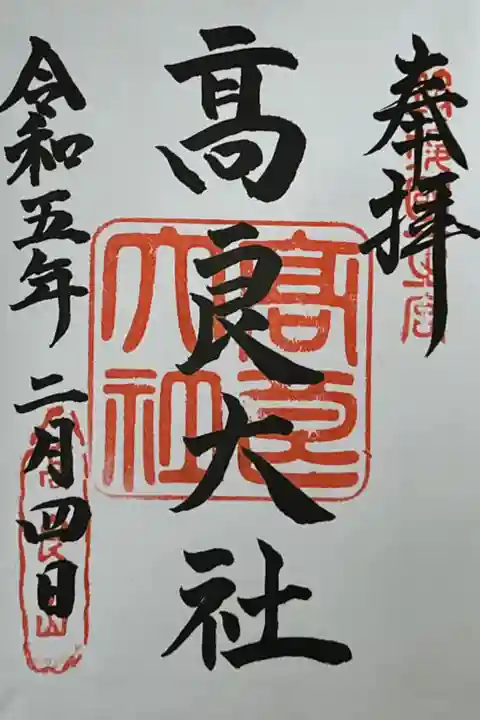 奉拝
髙良大社
令和五年二月四日
髙良大社